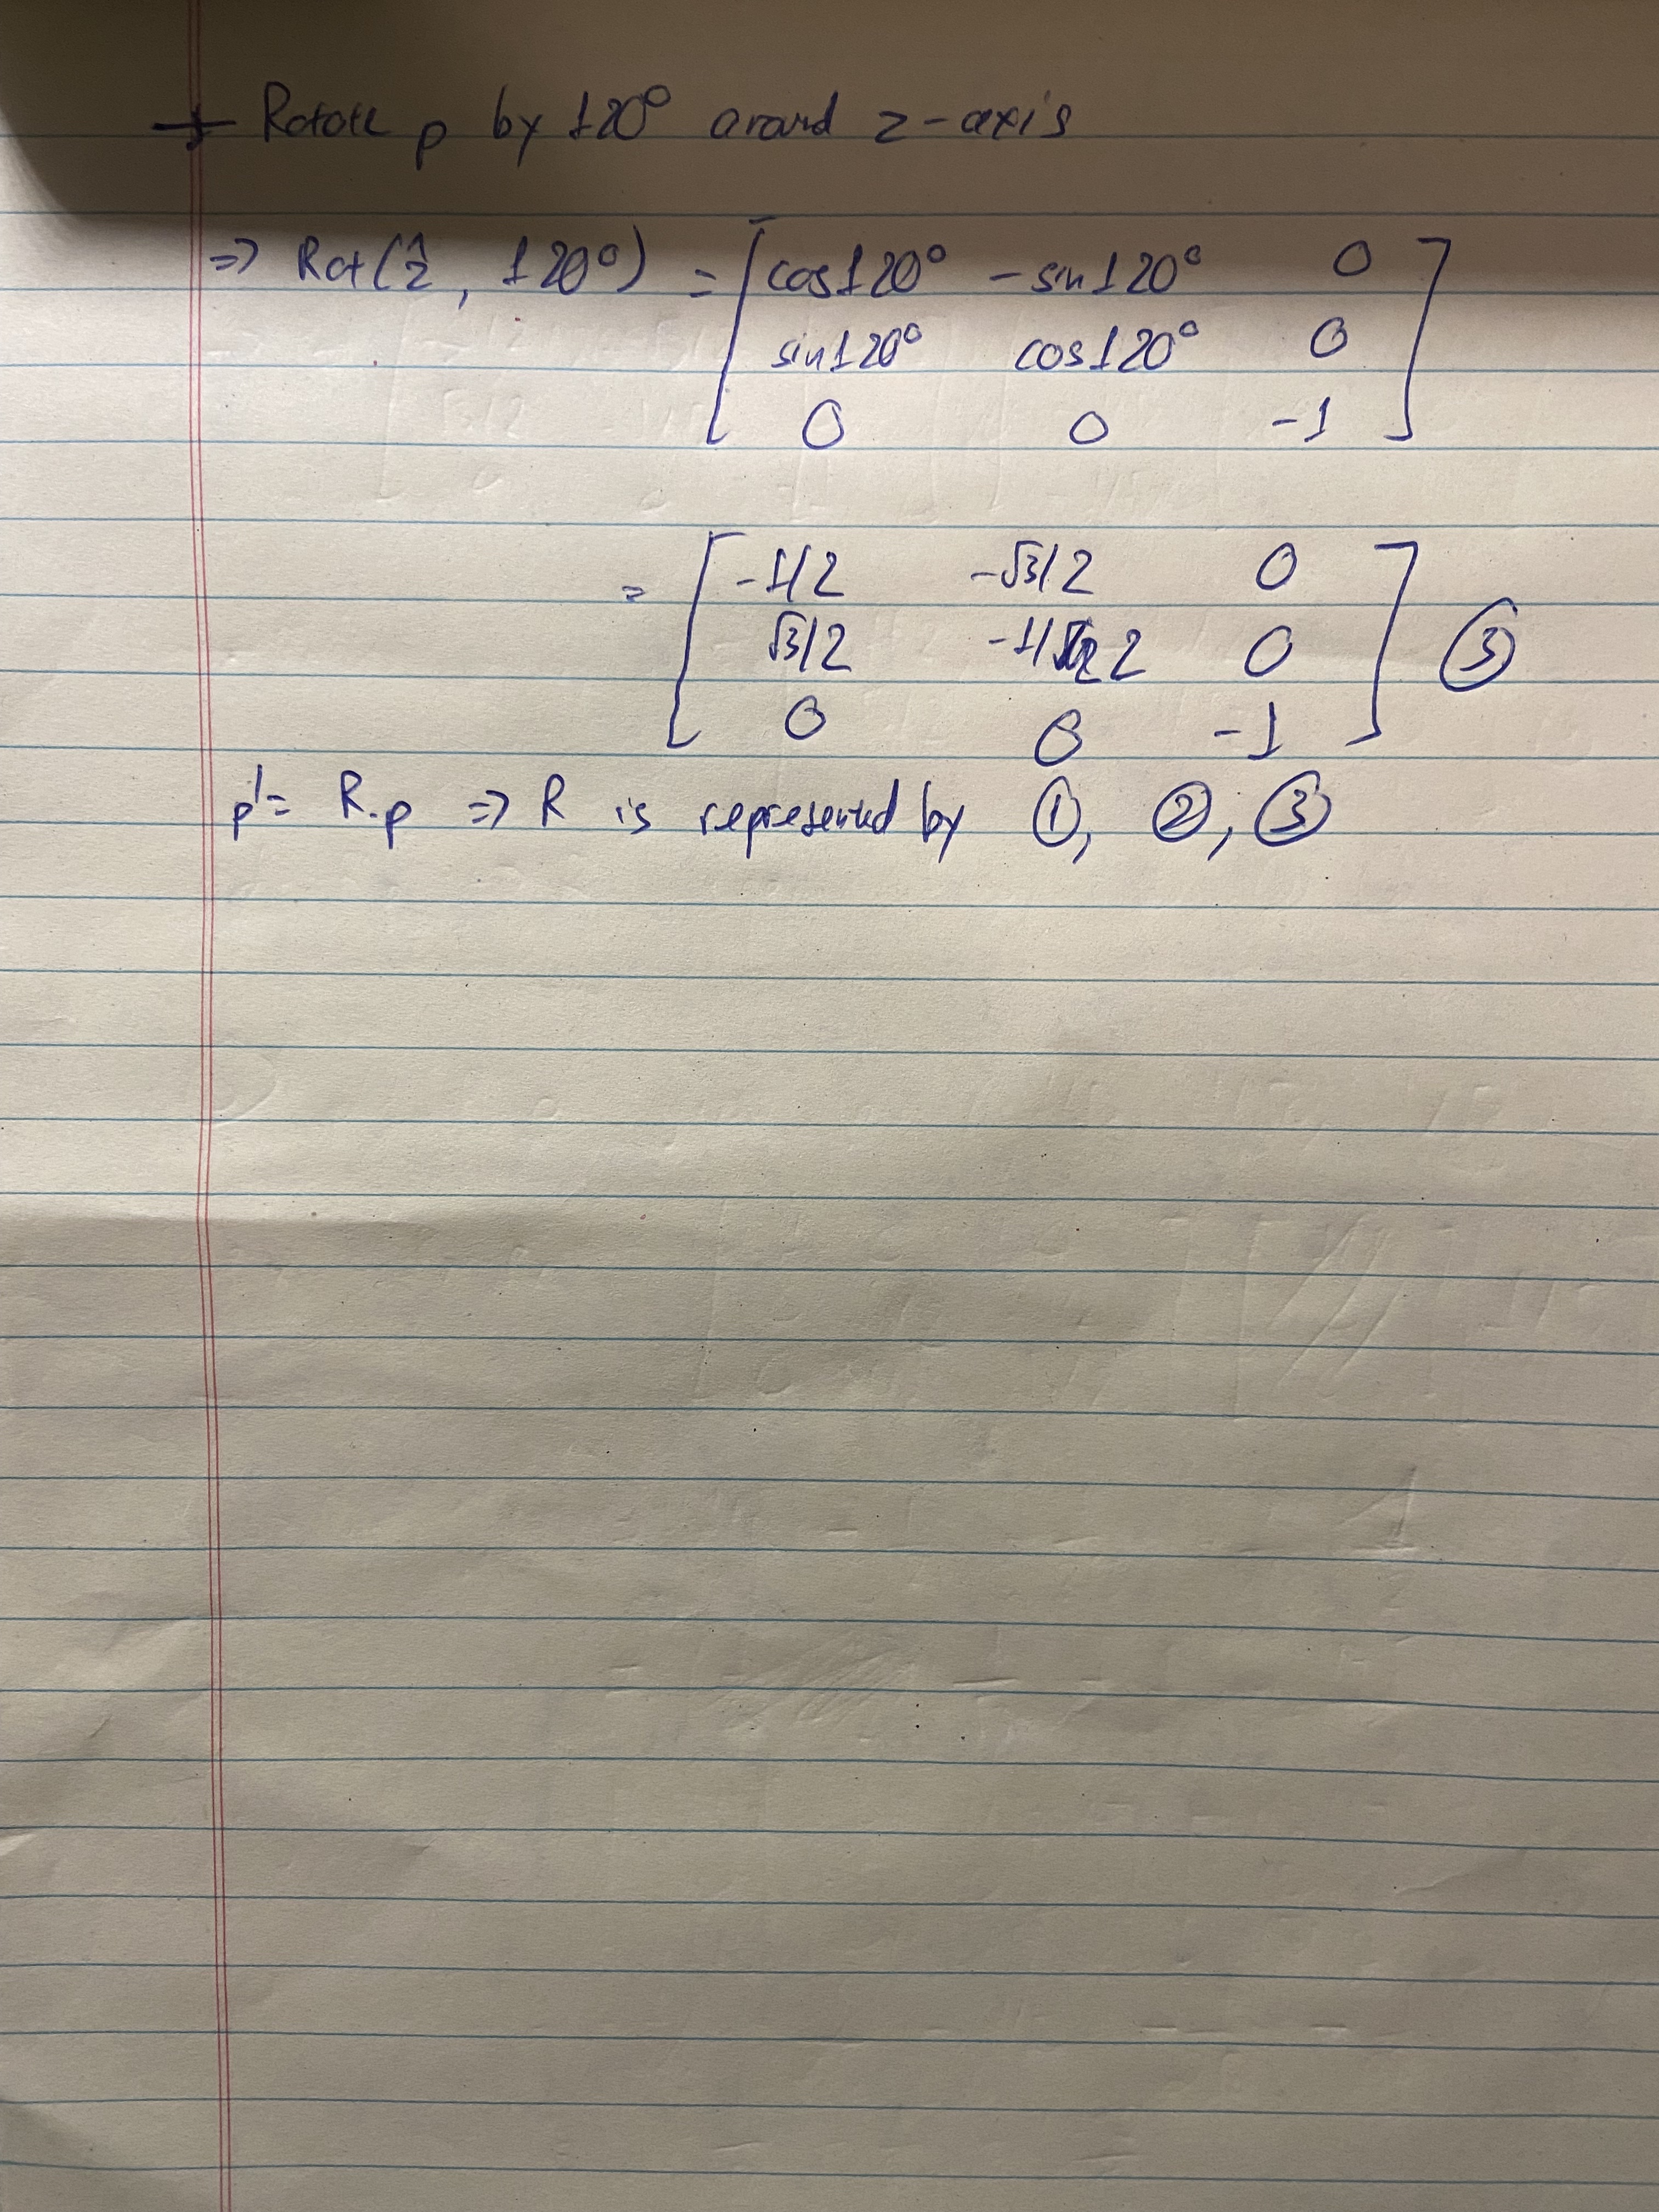 + Rotate p by 120° around z-axis
=> Rot(ẑ, 120°) = [cos120° -sin120° 0
sin120° cos120° 0
0 0 -1]
= [-1/2 -√3/2 0
√3/2 -1/2 0
0 0 -1] ③
p' = R.p => R is represented by ①, ②, ③